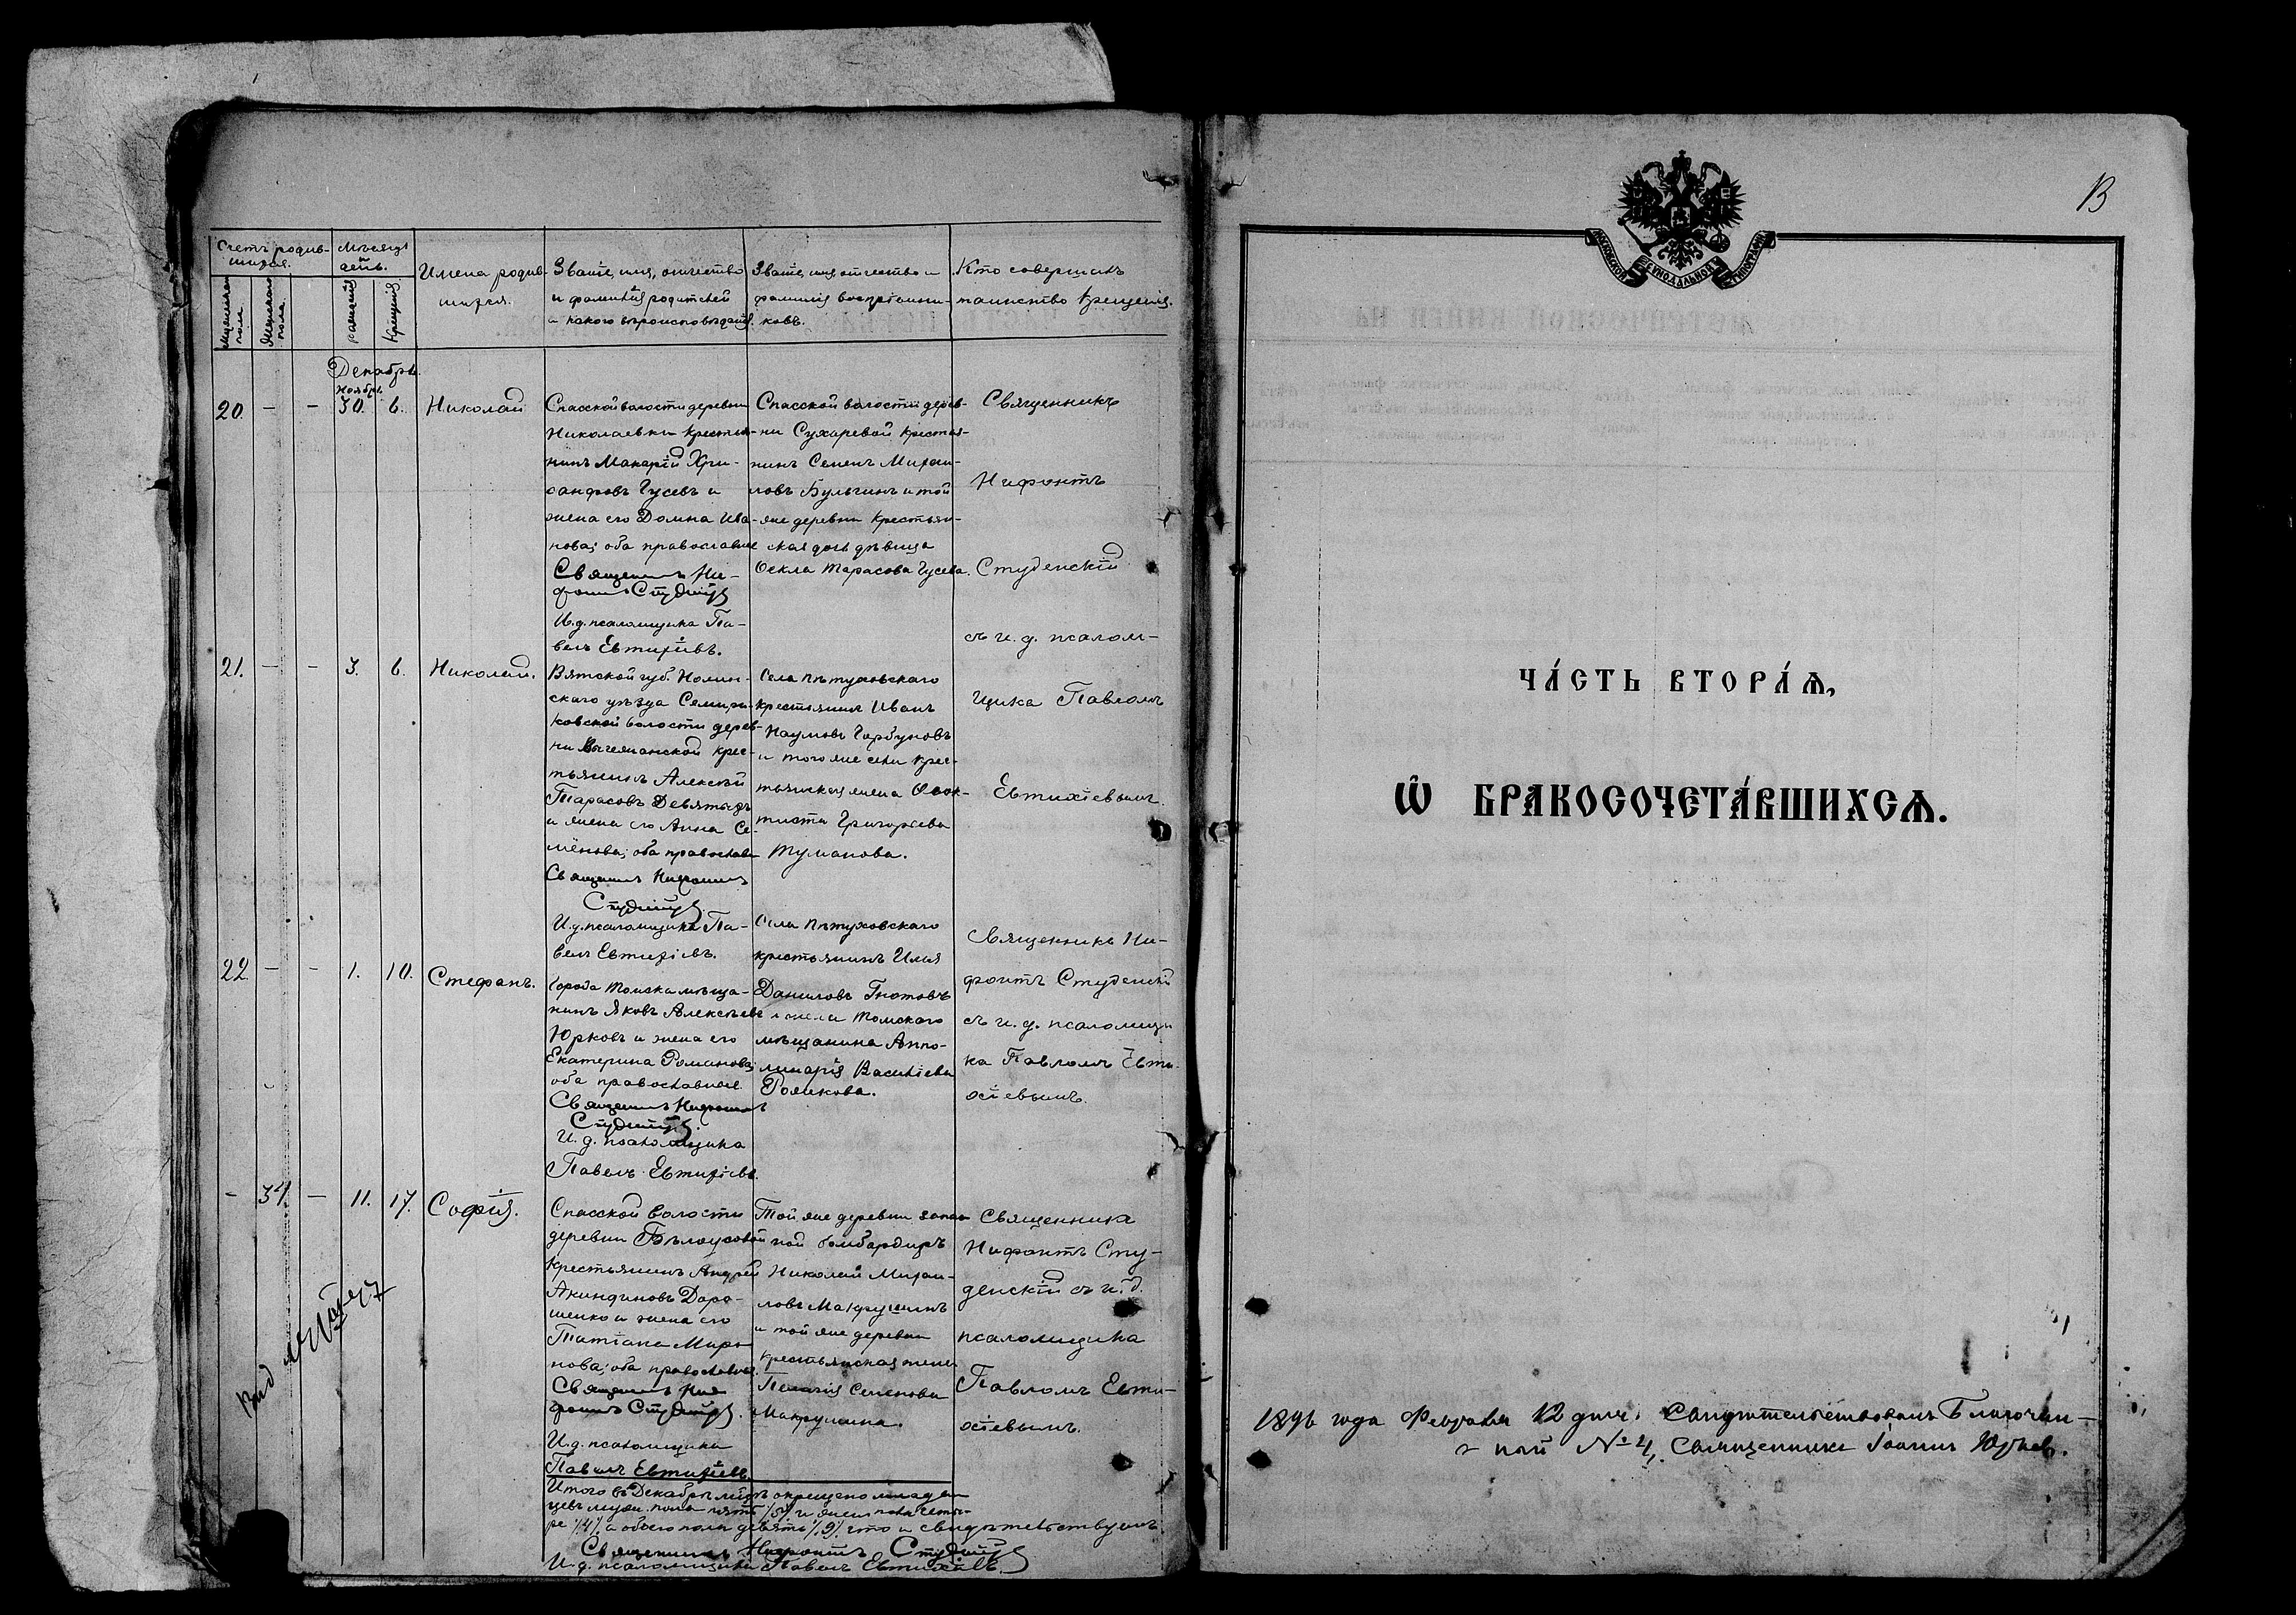 Счетъ родив-
шихся.
Мужескаго пола.
Женскаго пола.
Мѣсяцъ
день.
рожденія
Крещенія
Имена родив-
шихся.
Званіе, имя, отчество
и фамилія родителей
и какого вѣроисповѣданія.
Званіе, имя отчество и
фамилія воспріемни-
ковъ.
Кто совершалъ
таинство крещенія.
Декабрь.
Ноябрь.
20. - - 30. 6. Николай
Спасской волости деревни
Николаевки крестья-
нинъ Макарій Хри-
санфовъ Гусевъ и
жена его Домна Ива-
нова; оба православные
Священникъ Ни-
фонтъ Студенскій
И.д. псаломщика Па-
велъ Евтихіевъ.
Спасской волости дерев-
ни Сухаревой крестья-
нинъ Семенъ Михаи-
ловъ Булыгинъ и той
же деревни крестьян-
ская дочь дѣвица
Ѳекла Тарасова Гусева.
Священникъ
Нифонтъ
Студенскій
съ и. д. псалом-
щика Павломъ
Евтихіевымъ.
21. - - 3. 6. Николай.
Вятской губ. Нолин-
скаго уѣзда
ковской волости дерев-
ни крес-
тьянинъ Алексѣй
Тарасовъ Девятыхъ
и жена его Анна Се-
мёнова; оба православн
Священникъ Нифонтъ
Студенскій.
И.д. псаломщика Па-
велъ Евтихіевъ.
Села Пѣтуховскаго
крестьянинъ Иванъ
Наумовъ Горбуновъ
и того же села крес-
тьянская жена Ѳеок-
тиста Григорьева
Туманова.
22 - - 1. 10. Стефанъ.
Города Томска мѣща-
нинъ Яковъ Алексѣевъ
Юрковъ и жена его
Екатерина Романова;
оба православные
Священникъ Нифонтъ
Студенскій.
И. д. псаломщика
Павелъ Евтихіевъ.
Села Пѣтуховскаго
крестьянинъ Илья
Даниловъ
и жена Томскаго
мѣщанина Аппо-
линарія Василіева
Рожкова.
Священникъ Ни-
фонтъ Студенскій
съ и. д. псаломщи
ка Павломъ Евти-
хіевымъ.
- 34. - 11. 17. Софія.
Спасской волости
деревни Бѣлоусовой
крестьянинъ Андрей
Акиндиновъ Доро-
шенко и жена его
Татіана Миро
нова; оба православные.
Священникъ Ни
фонтъ Студенскій.
И.д. псаломщика
Павелъ Евтихіевъ.
Той же деревни запас
ной бомбардиръ
Николай Михаи-
ловъ Макрушинъ
и той же деревни
крестьянская жена
Пелагія Семенова
Макрушина.
Священникъ
Нифонтъ Сту-
денскій съ и. д.
псаломщика
Павломъ Евти-
хіевымъ.
Итого въ Декабрѣ м-цѣ окрещено младен
цевъ муж. пола пять /5/ и женс пола четы-
ре /4/, а обоего пола девять /9/, что и свидѣтельствуемъ:
Священникъ Нифонтъ Студенскій
И. д. псаломщика Павелъ Евтихіевъ.
МОСКОВСКОЙ СУНОДАЛЬНОЙ ТИПОГРАФІИ
ЧА́СТЬ ВТОРА́Ѧ,
Ѡ҆ БРАКОСОЧЕТА́ВШИХСѦ.
1896 года Февраля 12 дня. Свидѣтельствовалъ Благочин-
ный № 4, Священникъ Іоаннъ Юрьевъ.